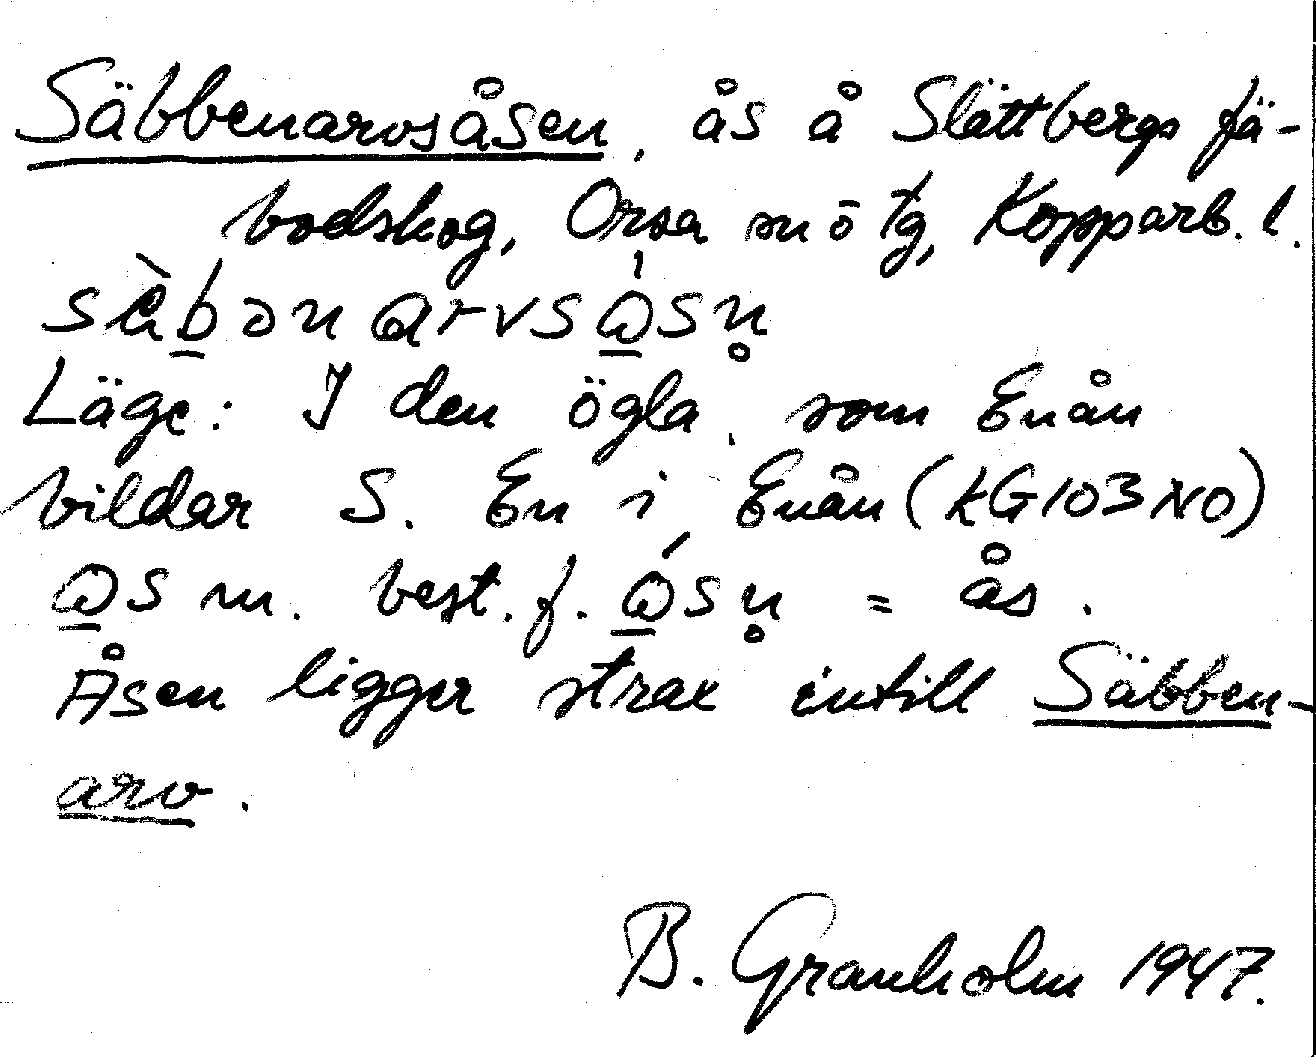 Säbbenarvsåsen, ås å Slättbergs fä-
bodskog, Orsa sn ö tg, Kopparb. l.
Läge: I den ögla, som Enån
bildar S. En i Enån (KG103NO)
m. best. f. = ås.
Åsen ligger strax intill Säbben-
arv.
B. Granholm 1947.